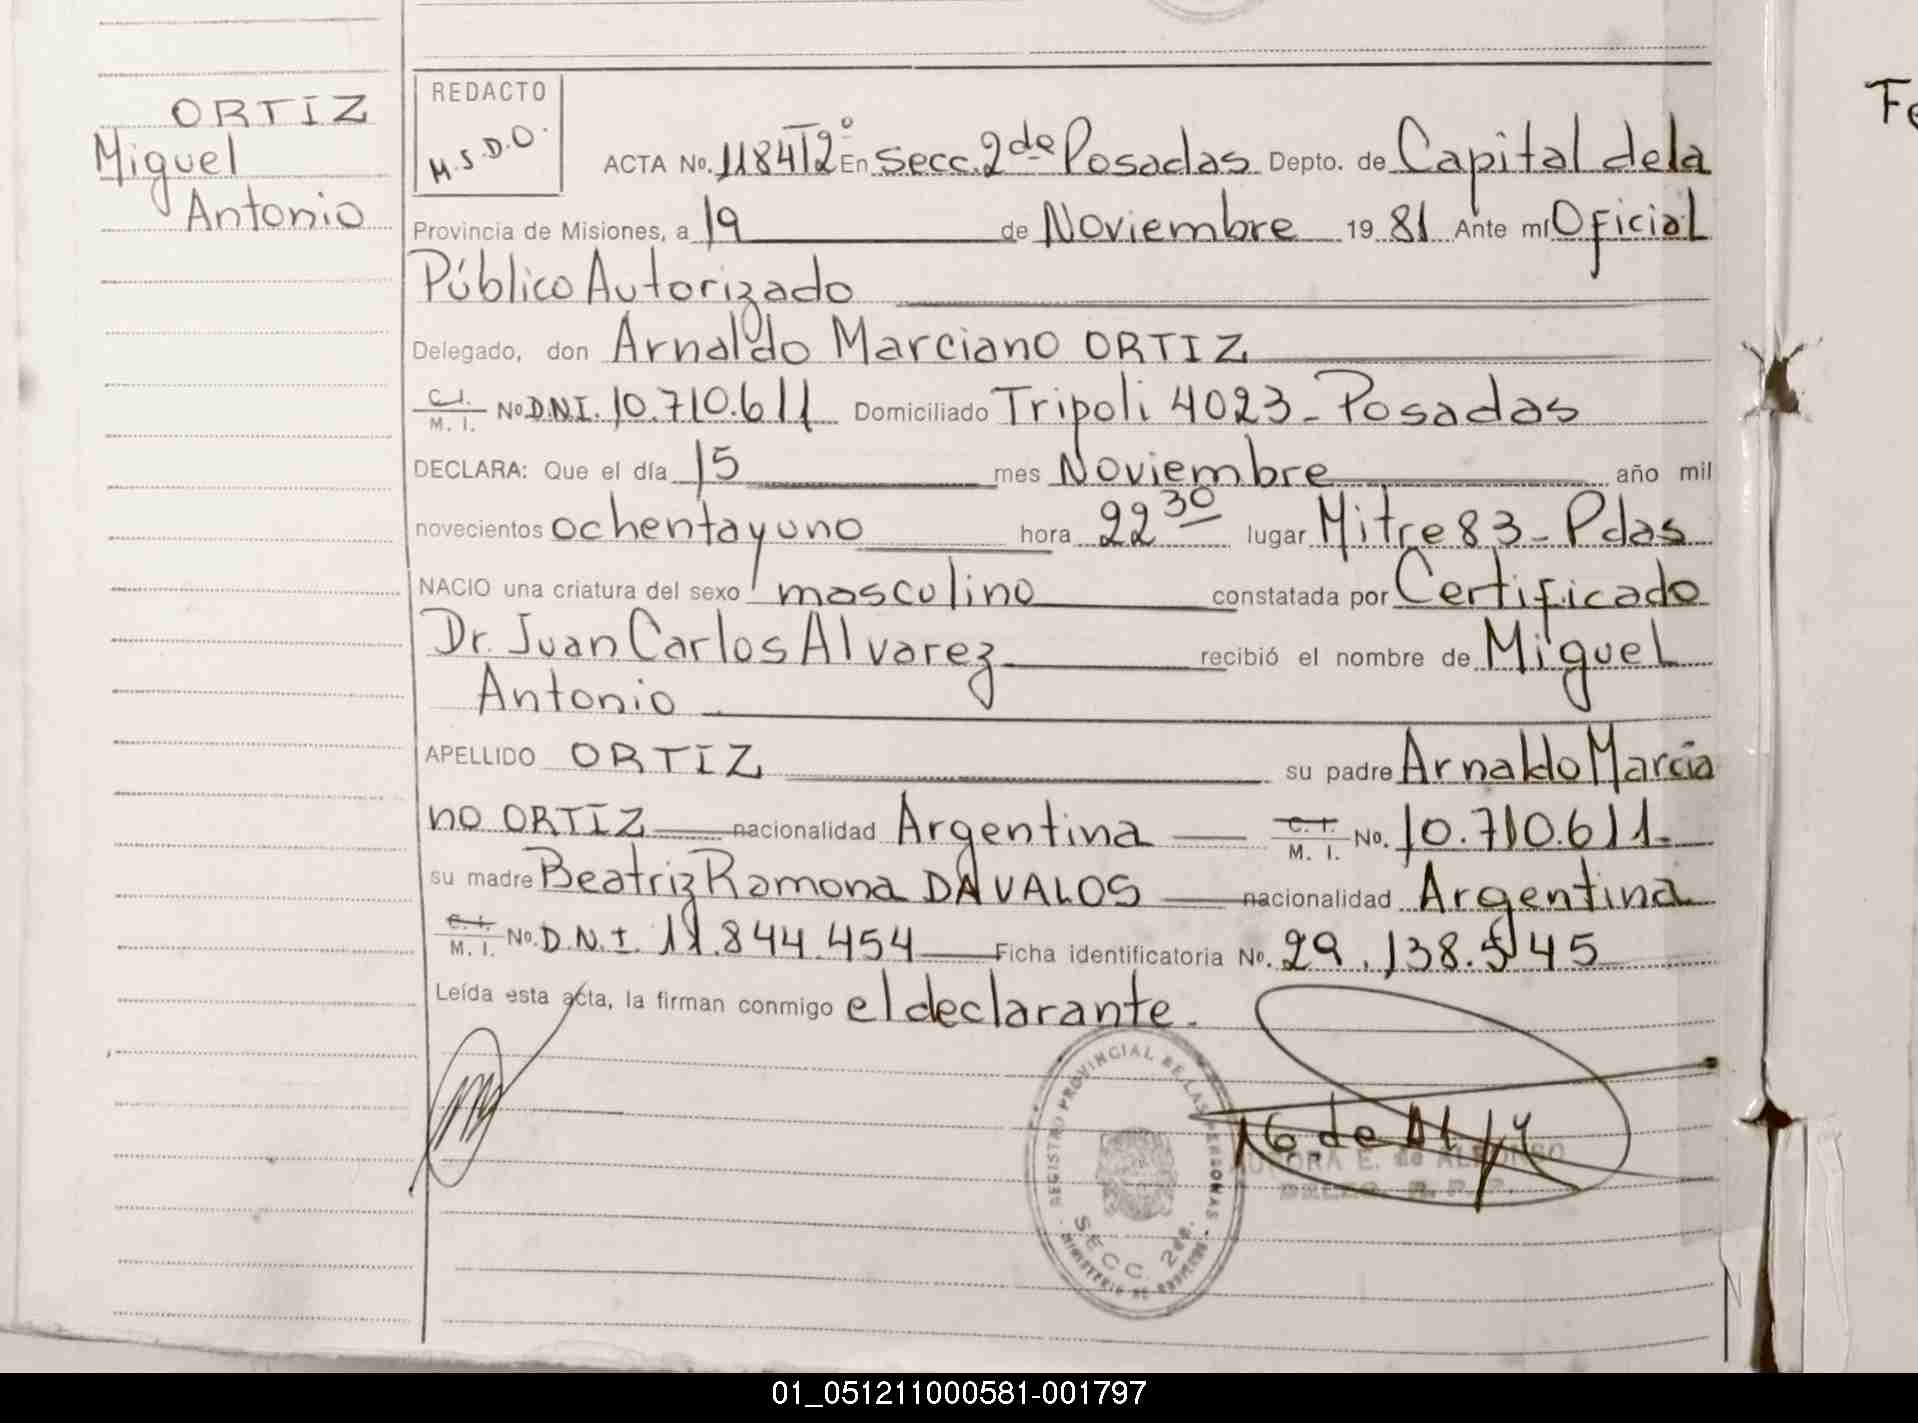 ORTIZ
Miguel
Antonio
REDACTO
M.S.D.O.
ACTA No. 1184 T2º En Secc. 2da Posadas Depto. de Capital de la
Provincia de Misiones, a 19 de Noviembre 19 81 Ante mí Oficial
Público Autorizado
Delegado, don Arnaldo Marciano ORTIZ
C.I. M. I. No D.N.I. 10.710.611 Domiciliado Tripoli 4023 - Posadas
DECLARA: Que el día 15 mes Noviembre año mil
novecientos ochenta y uno hora 22 30 lugar Mitre 83 - Pdas
NACIO una criatura del sexo masculino constatada por Certificado
Dr. Juan Carlos Alvarez recibió el nombre de Miguel
Antonio
APELLIDO ORTIZ su padre Arnaldo Marcia
no ORTIZ nacionalidad Argentina C. I. M. I. No. 10.710.611.
su madre Beatriz Ramona DAVALOS nacionalidad Argentina
C. I. M. I. No. D.N.I. 11.844.454 Ficha identificatoria No. 29.138.545
Leída esta acta, la firman conmigo el declarante.
REGISTRO PROVINCIAL DE LAS PERSONAS
SECC. 2da.
MINISTERIO DE GOBIERNO
AURORA E. de ALFONSO
Fe
01_051211000581-001797